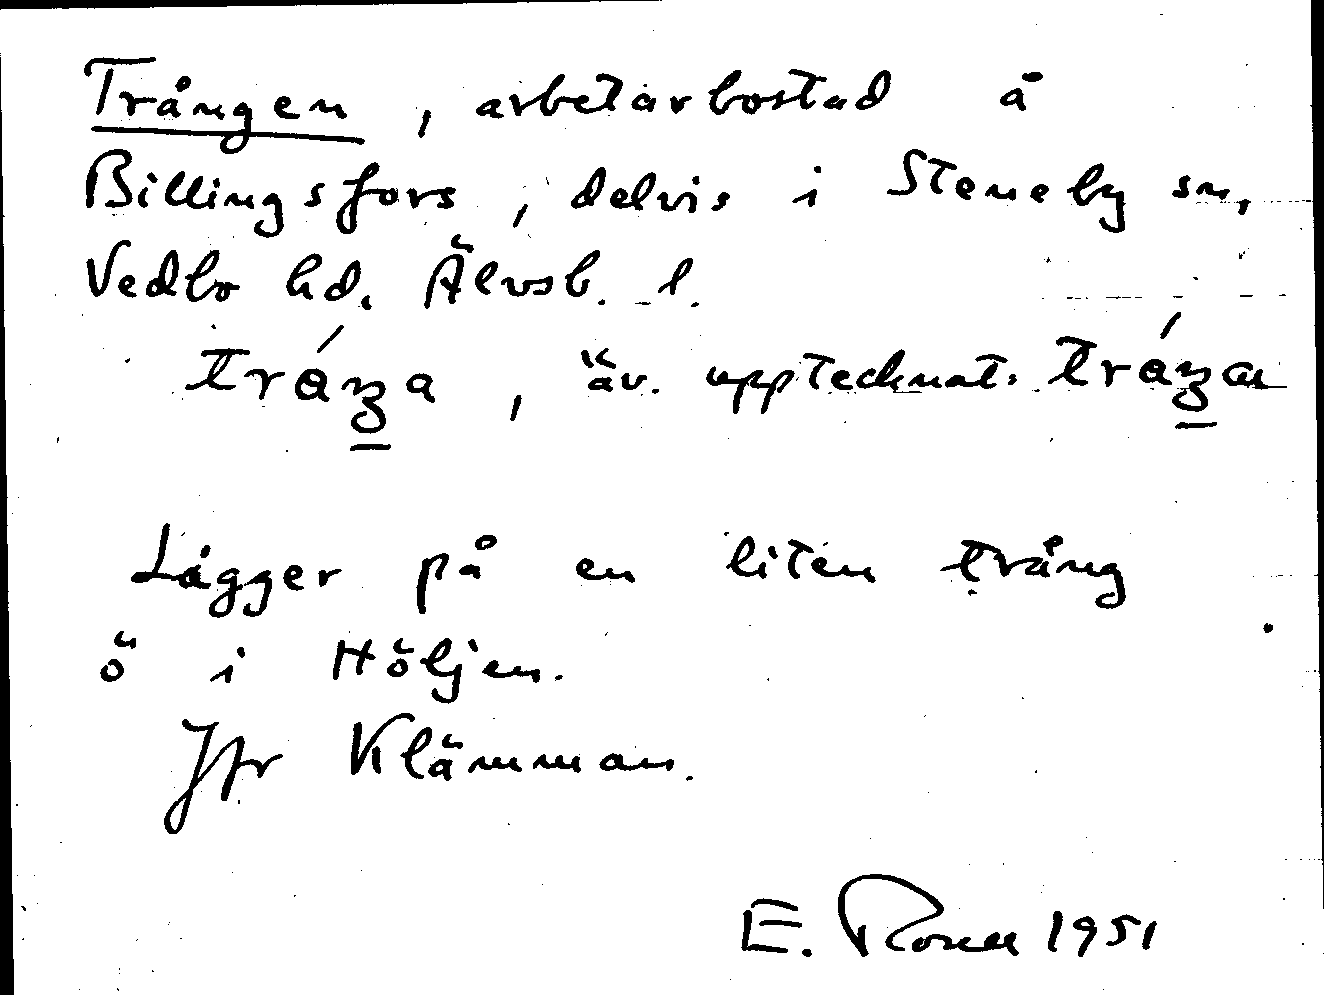 Trången, arbetarbostad å
Billingsfors, delvis i Steneby sn,
Vedbo hd. Älvsb. l.
äv. upptecknat.
Lägger på en liten trång
ö i Höljen.
Jfr Klämman.
E. 1951